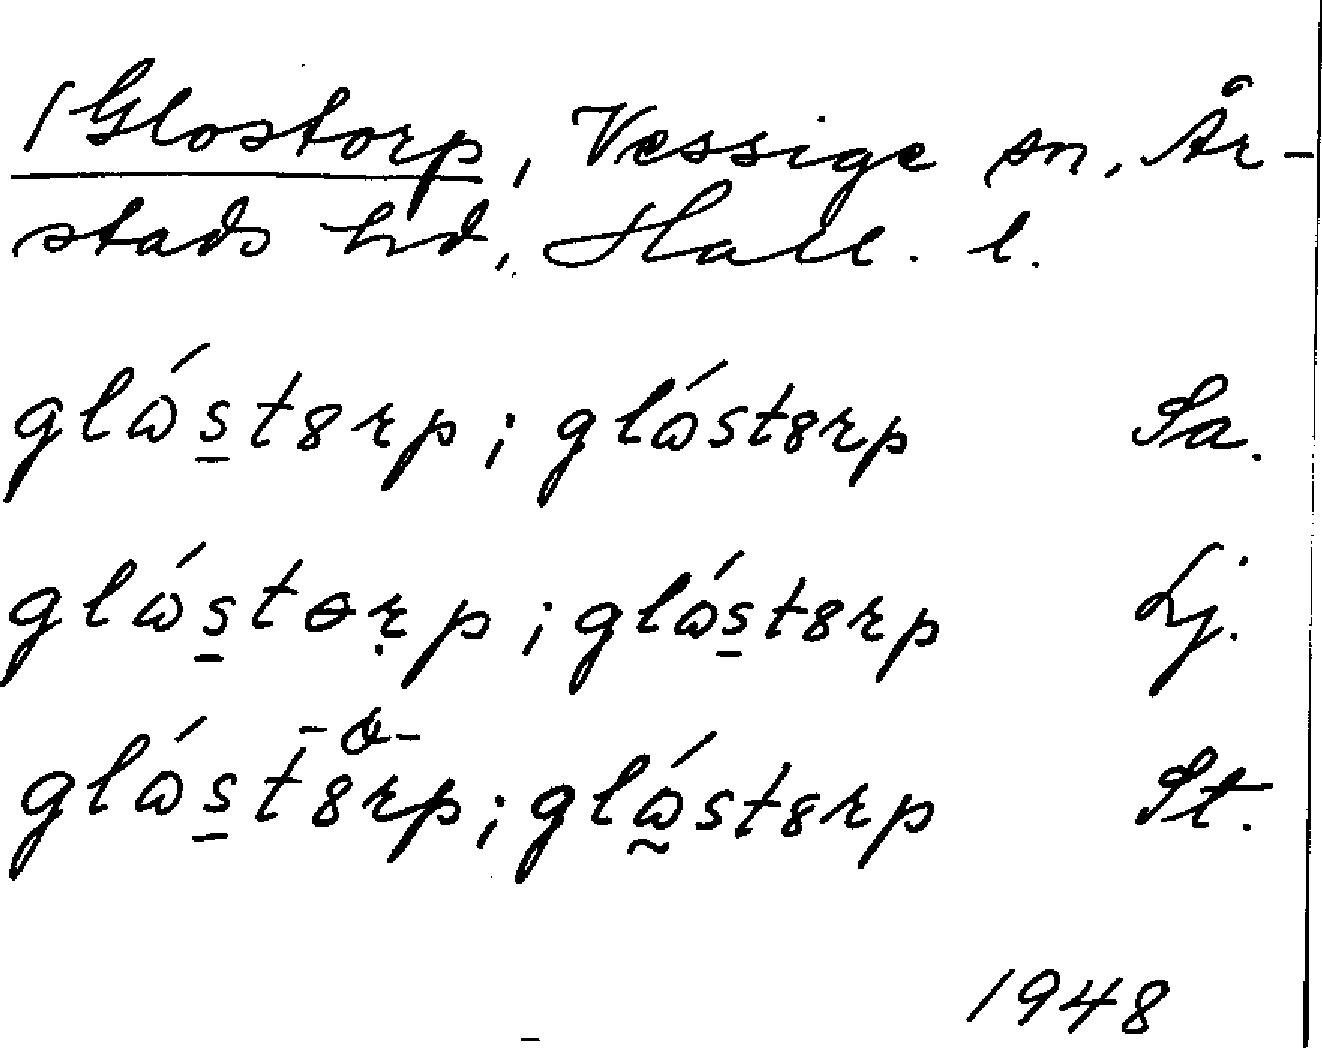 /Glostorp, Vessige sn, År-
stads hd, Hall. l.
glɷ́s̲tȣrp; glɷ́stȣrp Sa.
glɷ́s̲tɵṛp; glɷ́s̲tȣrp Lj.
-o-
glɷ́s̲tȣrp; glɷ̰́stȣrp St.
1948